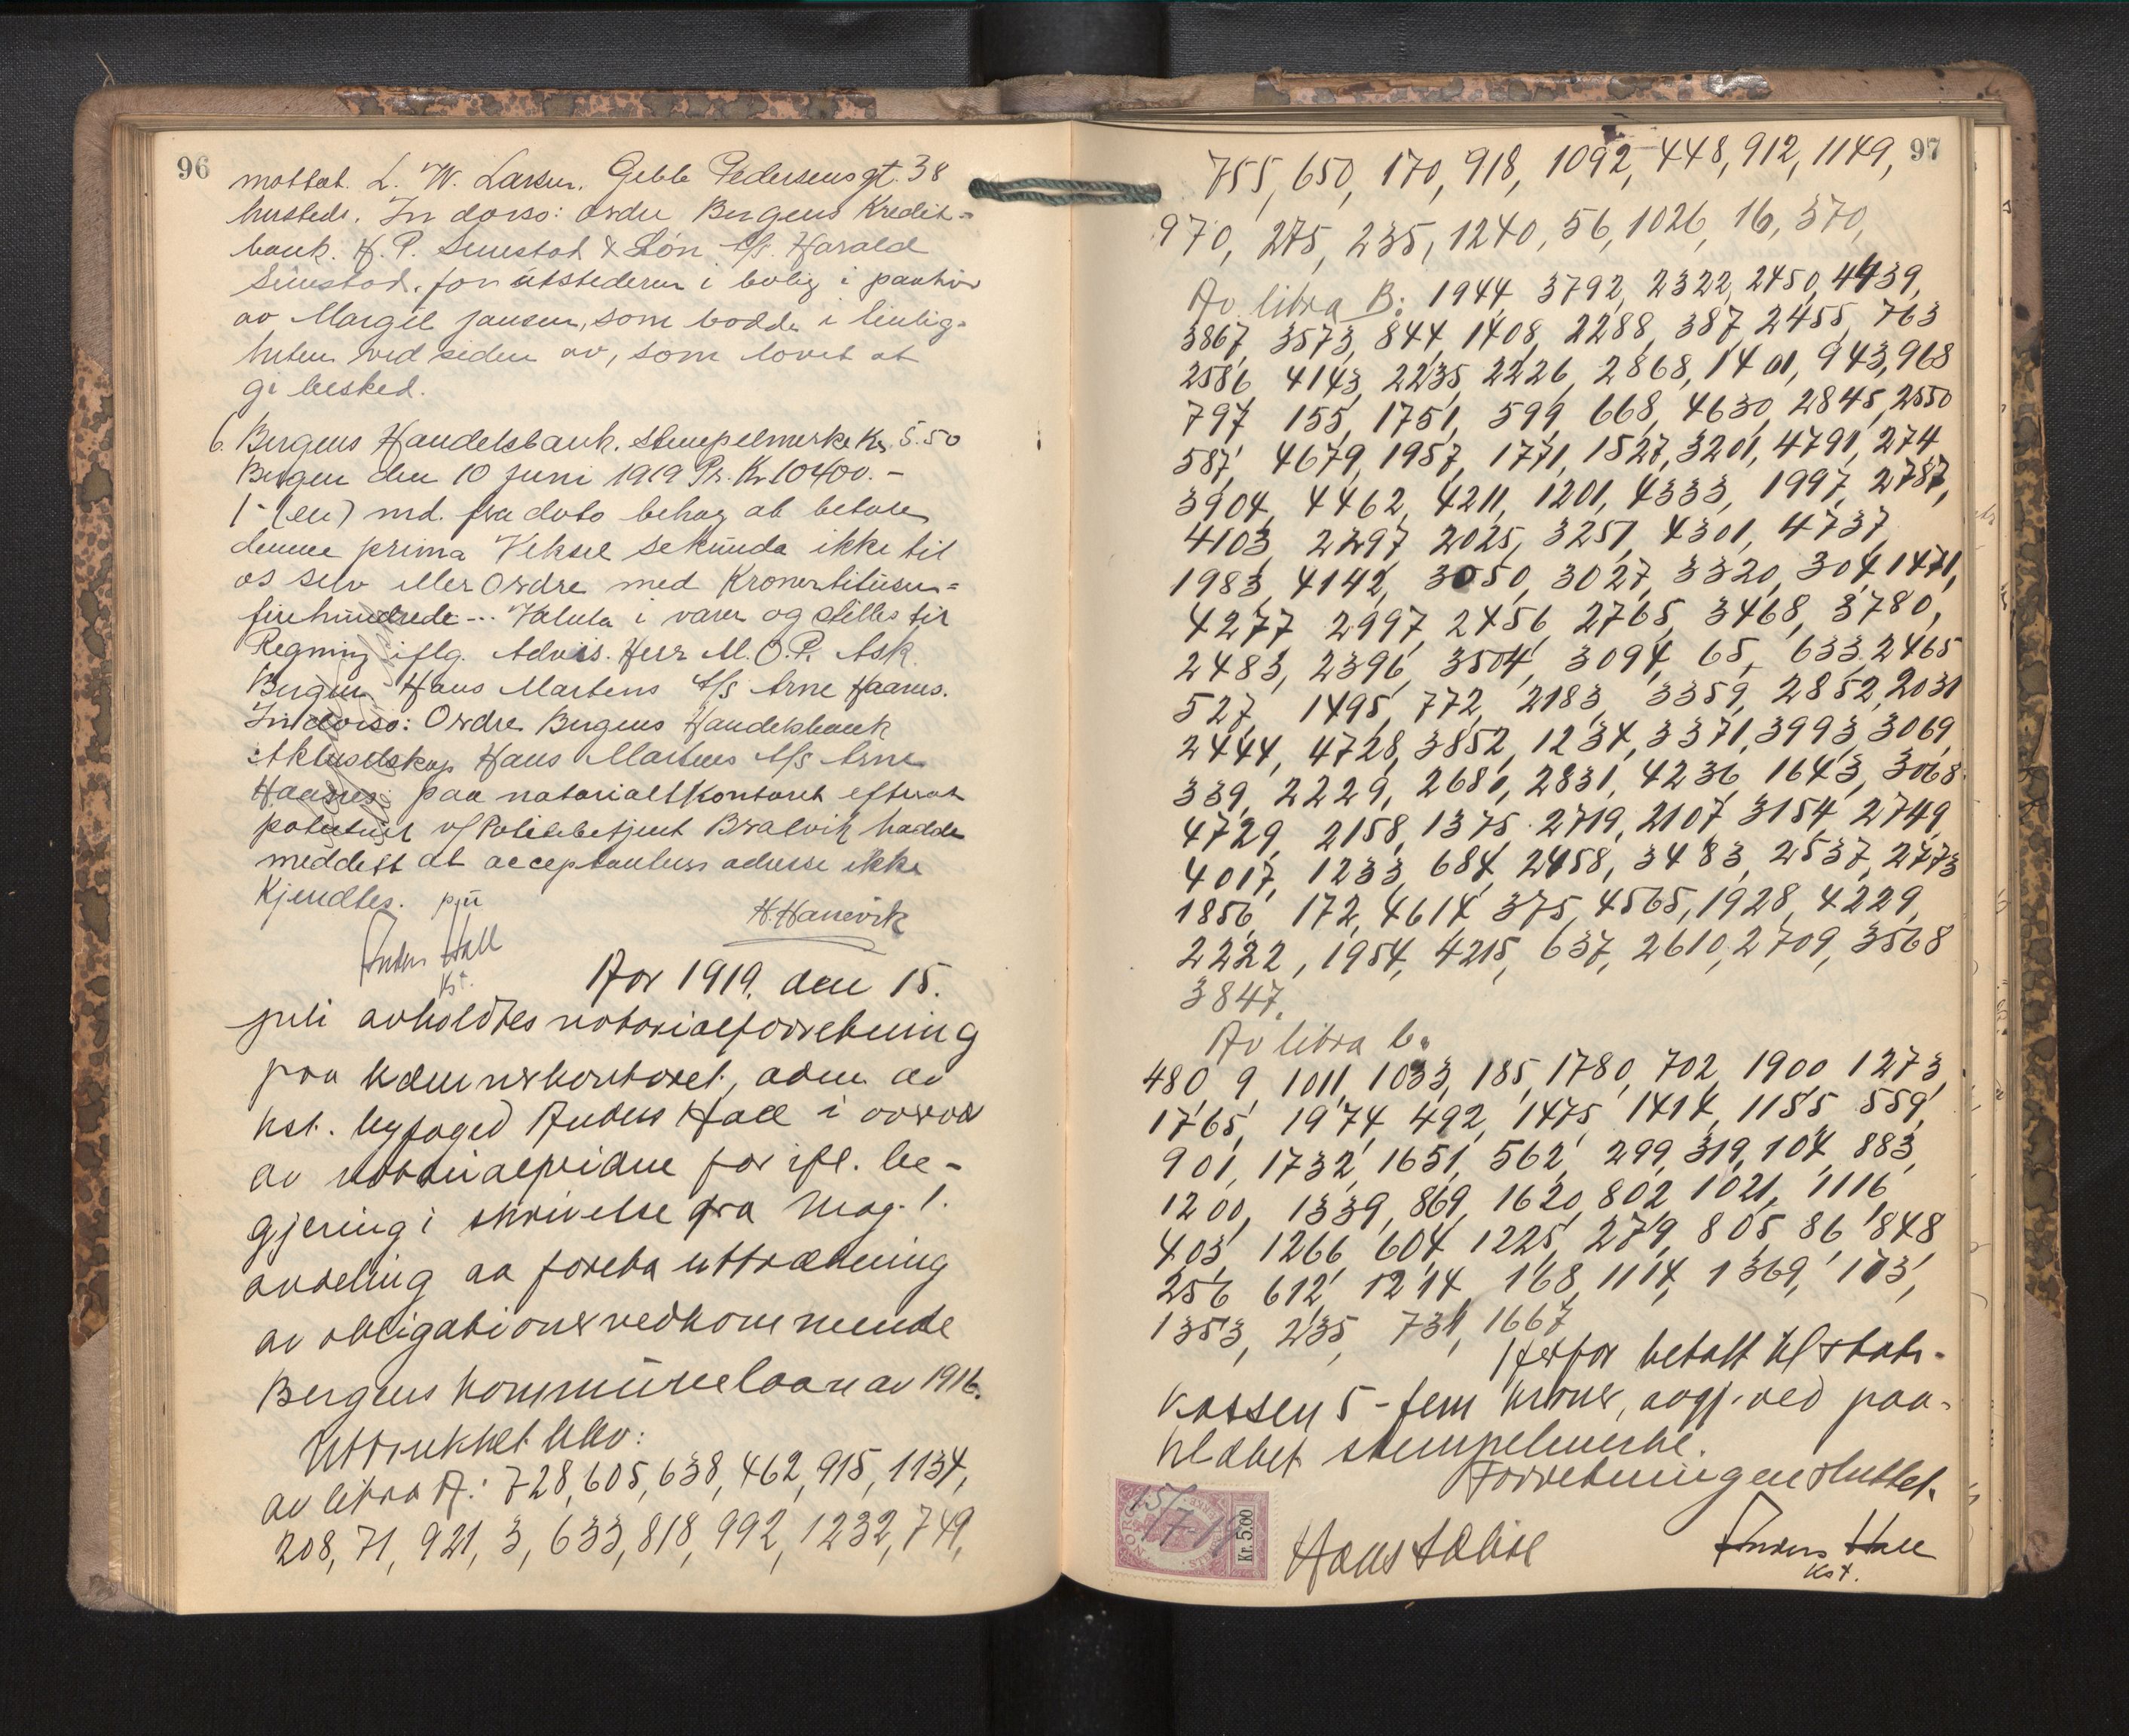 96
mottat. L. W. Larsen. Geble Pedersensgt. 38
hersteds. In dorso: Ordre Bergens Kredit-
bank. H. P. Simestad & Søn e/f. Harald
Simestad. for utstederen i bolig i paahör
av Margit Jansen, som bodde i leilig-
heten ved siden av, som lovet at
gi besked.
6. Bergens Handelsbank. Stempelmerke Kr. 5.50
Bergen den 10 Juni 1919 Pr. Kr 10400.-
1- (en) md. fra dato behag at betale
denne prima Veksel sekunda ikke til
os selv eller Ordre med Kroner titusen=
firehundrede --- Valuta i varer og stilles til
Regning iflg. Advis. Herr M. O. P. Ask.
Bergen Hans Martens A/S Arne Haanes.
In dorso: Ordre Bergens Handelsbank
Aktieselskap Hans Martens A/S Arne
Haanes; paa notarialkontoret efterat
politiet v/ Politibetjent Bratvik hadde
meddelt at acceptantens adresse ikke
Kjendtes.
H. Hanevik
Anders Hall
kst.
Aar 1919, den 15.
juli avholdtes notarialforretning
paa kæmnerkontoret, adm. av
kst. byfoged Anders Hall i
av for ifl. be-
gjering i skrivelse fra Mag. 1.
avdeling aa foreta uttrækning
av obligationer vedkommende
Bergens kommunelaan av 1916.
Uttrukket blev:
av litra A.: 728, 605, 638, 462, 915, 1134,
208, 71, 921, 3, 633, 818, 992, 1232, 749,
97
755, 650, 170, 918, 1092, 448, 912, 1149,
970, 275, 235, 1240, 56, 1026, 16, 370,
Av litra B: 1944, 3792, 2322, 2450, 4439,
3867, 3573, 844, 1408, 2288, 387, 2455, 763
2586, 4143, 2235, 2226, 2868, 1401, 943, 968
797, 155, 1751, 599, 668, 4630, 2845, 2550
587, 4679, 1957, 1771, 1527, 3201, 4791, 274
3904, 4462, 4211, 1201, 4333, 1997, 2787,
4103, 2297, 2025, 3251, 4301, 4737,
1983, 4142, 3050, 3027, 3320, 304, 1471,
4277, 2997, 2456, 2765, 3468, 3780,
2483, 2396, 3504, 3094, 65, 633, 2465
527, 1495, 772, 2183, 3359, 2852, 2031
2444, 4728, 3852, 1234, 3371, 3993, 3069,
339, 2229, 2680, 2831, 4236, 1643, 3068
4729, 2158, 1375, 2719, 2107, 3154, 2749,
4017, 1233, 684, 2458, 3483, 2537, 2773
1856, 172, 4614, 375, 4565, 1928, 4229,
2222, 1954, 4215, 637, 2610, 2709, 3568
3847.
Av litra C.
480, 9, 1011, 1033, 185, 1780, 702, 1900, 1273,
1765, 1974, 492, 1475, 1414, 1155, 559,
901, 1732, 1651, 562, 299, 319, 104, 883,
1200, 1339, 869, 1620, 802, 1021, 1116
403, 1266, 604, 1225, 279, 805, 86, 848
256, 612, 1214, 168, 1114, 1369, 103,
1353, 235, 731, 1667
Herfor betalt til stats-
kassen 5 - fem kroner, avgj. ved paa-
klæbet stempelmerke.
Forretningen sluttet.
15/7-19
Kr. 5.00
Anders Hall
kst.